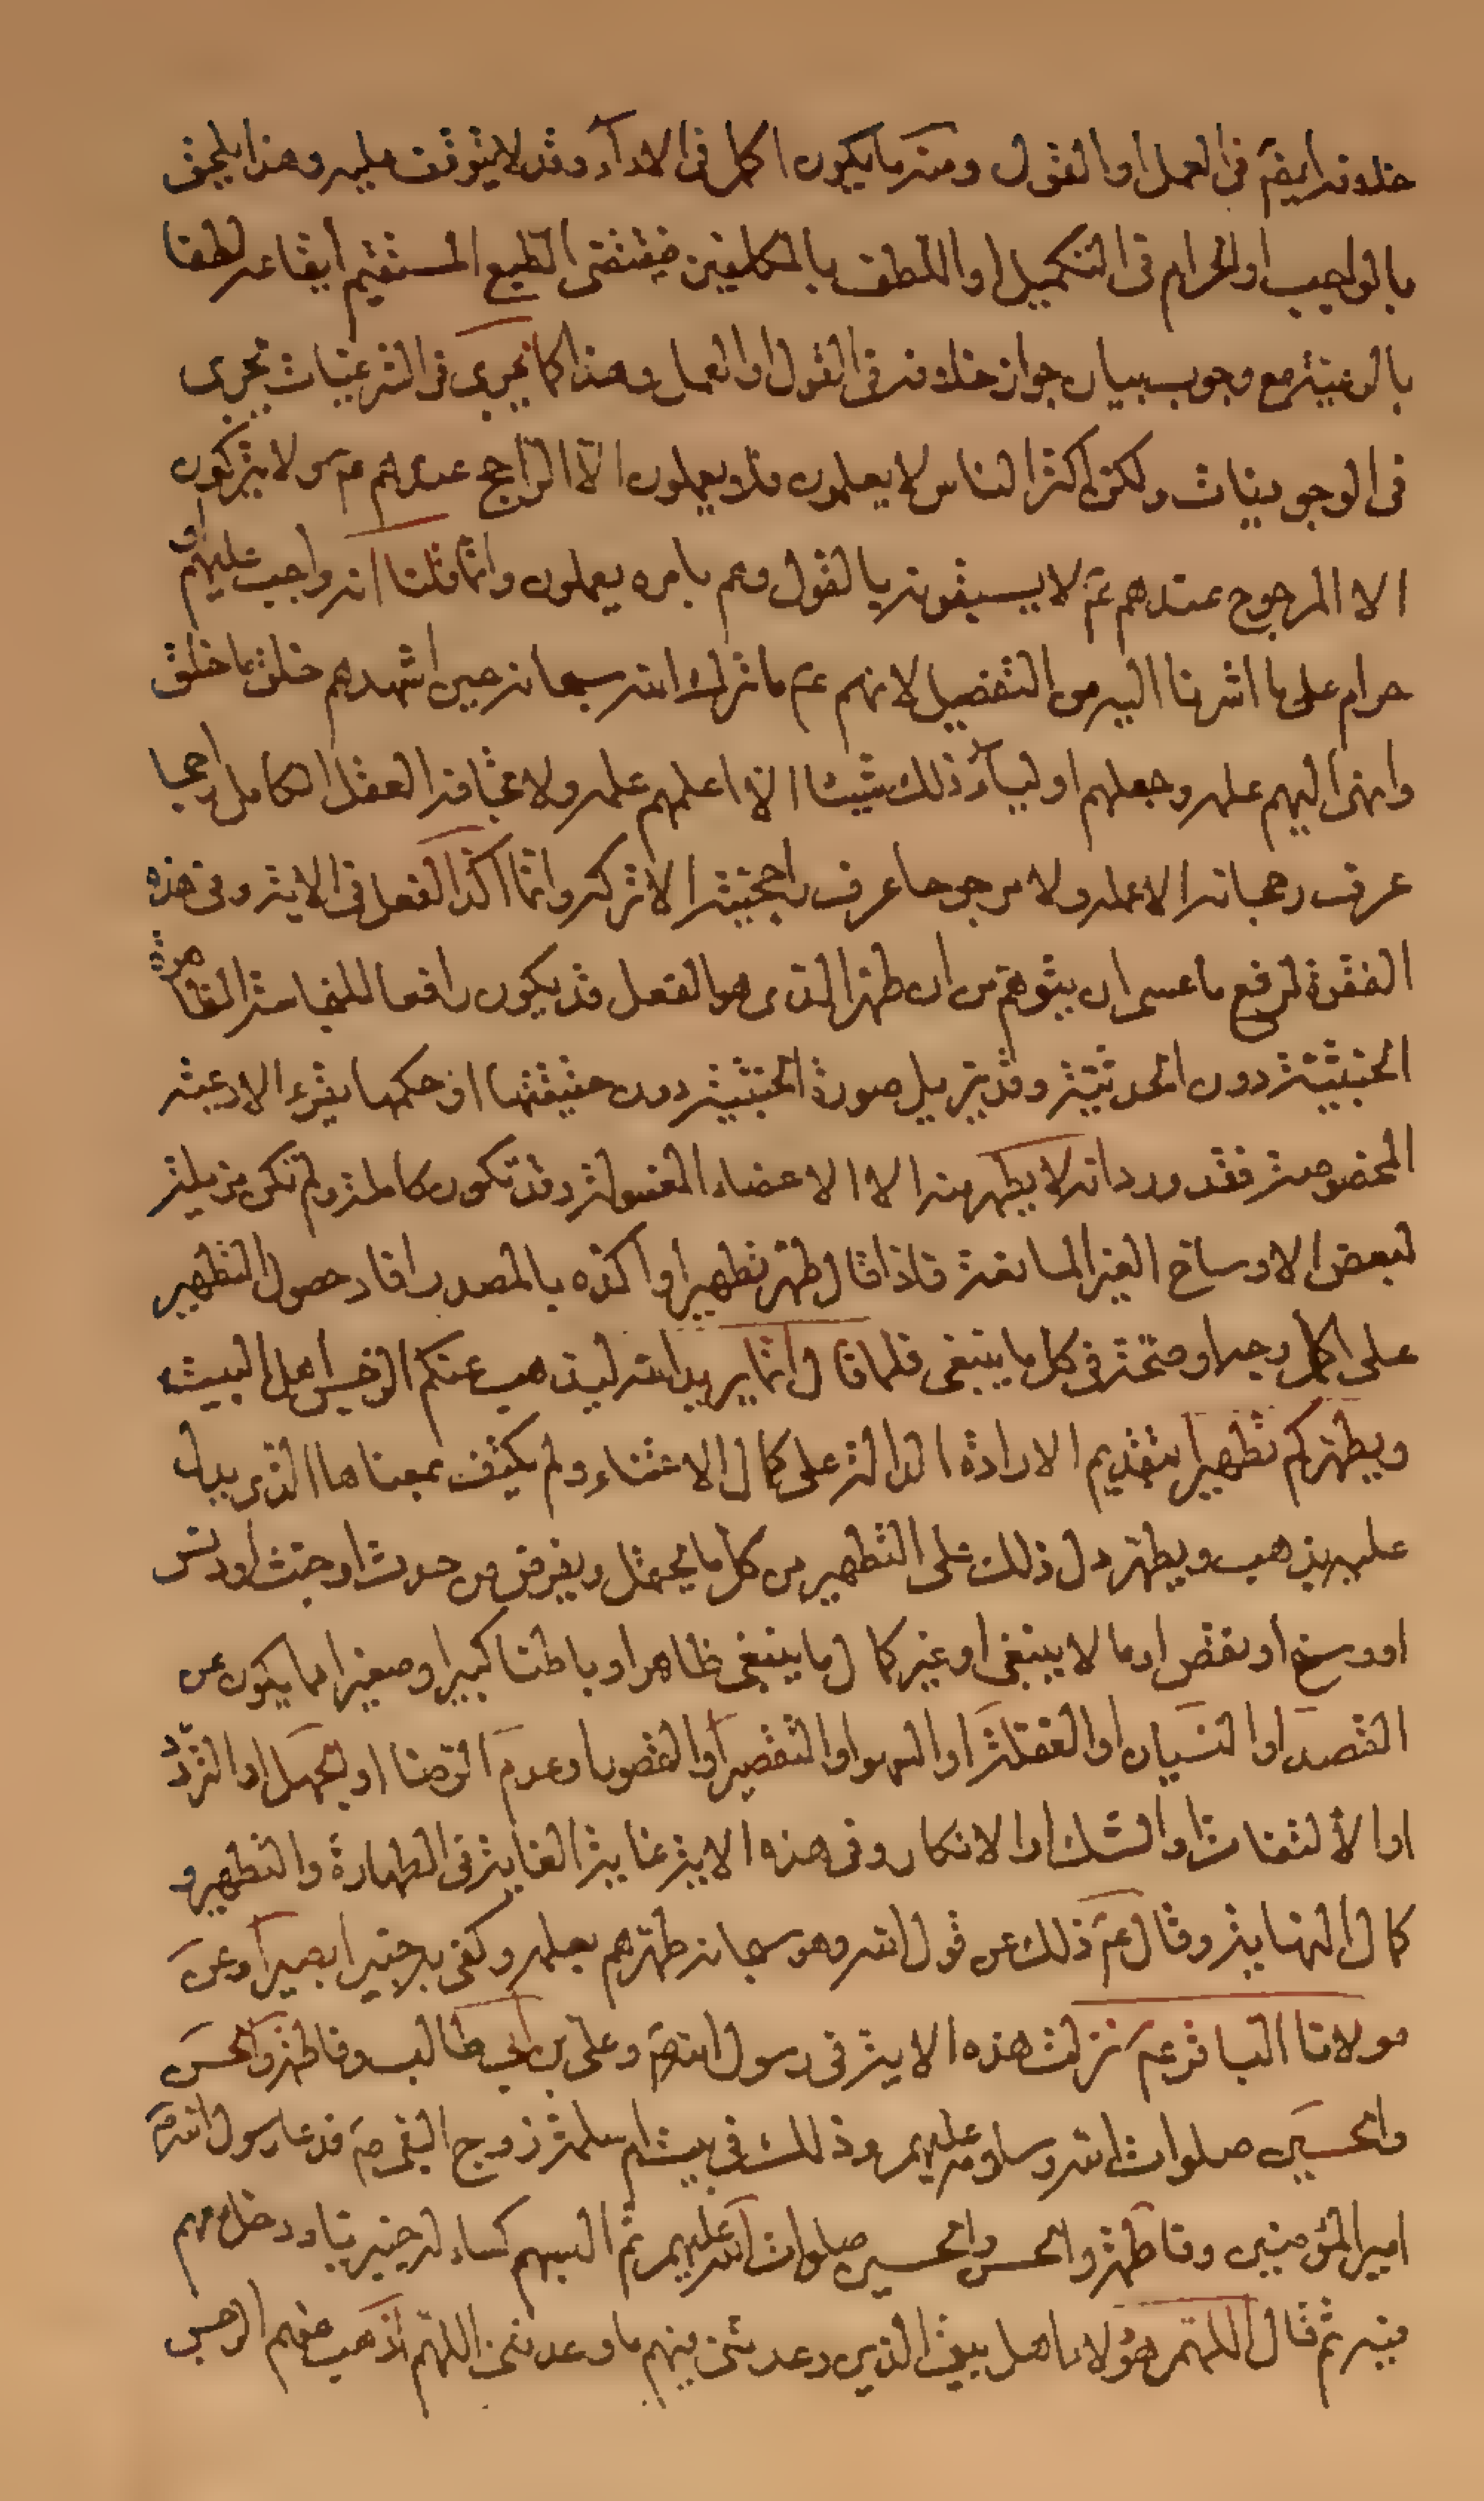 خلافه ايضا في العمل او القول ومنه ما يكون اكمل في الاداء وقد لا يتوقف عليه وهذا يلحق
بالواجب او الحرام في التكميل او اللطف بالمكلفين فيقتضى الطبع المستقيم ايقاعه لطفا
بالرعية مع وجوب بيان جواز خلافه في القول او العمل وهذا كما يجرى في الشرعيات يجرى
في الوجوديات ولكن اكثر الناس لا يعلمون فلا يعملون الا الراجح عندهم عم ولا يتركون
الا المرجوح عندهم عم لا يسبقونه بالقول وهم بامره يعملون وانما قلنا انه واجب عليهم او
حرام على ما اشرنا اليه من التفصيل لانهم عم ما ترك الله سبحانه حين اشهدهم خلق ما خلق
وانهى اليهم علمه وجعلهم اولياء ذلك شيئا الا اعلمهم علمه ولا يخافه العقل الكامل راجحا
عرف رجحانه الا عمله ولا مرجوحا عرف راجحيته الا تركه وانما اكد الفعل في الاية وفى هذه
الفقرة لرفع ما عسى ان يتوهم من ان طهر الذى هو الفعل قد يكون رافعا للنجاسة الظاهرة
الخبيثية دون الحدثية وقد يزيل صورة الخبثية دون حقيقتها او حكمها بقرء الادعية
المخصوصة فقد ورد انه لا يطهر منه الا الاعضاء المغسولة وقد تكون كاملة ولم تكن مزيلة
لبعض الاوساخ الغير المانعة فاذا قال طهر تطهيرا واكده بالمصدر افاد حصول التطهير
على اكمل وجه او صحته في كل ما ينبغى فلما قال انما يريد الله ليذهب عنكم الرجس اهل البيت
ويطهركم تطهيرا بتقديم الارادة الدالة على كمال الاعتناء ولم يكتف بمعناها الذى يدل
عليه يذهب ويطهر دل ذلك على التطهير من كل ما يحتمل ويفرض من حدث او خبث او دنس
او وسخ او نقص او ما لا ينبغى او غير كمال ما ينبغى ظاهرا وباطنا كبيرا وصغيرا مما يكون عن
القصد او النسيان او الغفلة او السهو او التقصير او القصور او عدم الرضا او الجهل او التردد
او الالتفات او الشك او الانكار وفى هذه الاية غاية الغاية في الطهارة والتطهير و
كمال النهاية وقال عم ذلك عن قول الله وهو سبحانه طهرهم بعلمه وكفى به خبيرا بصيرا وعن
مولانا الباقر عم نزلت هذه الاية في رسول الله ص وعلى بن ابى طالب وفاطمة والحسن
والحسين صلوات الله وسلامه عليهم وذلك في بيت ام سلمة زوج النبي ص فدعا رسول الله ص
امير المؤمنين وفاطمة والحسن والحسين صلوات الله عليهم ثم البسهم كساء له خيبريا ودخل معهم
فيه ثم قال اللهم هؤلاء اهل بيتى الذين وعدتنى فيهم ما وعدتنى اللهم اذهب عنهم الرجس